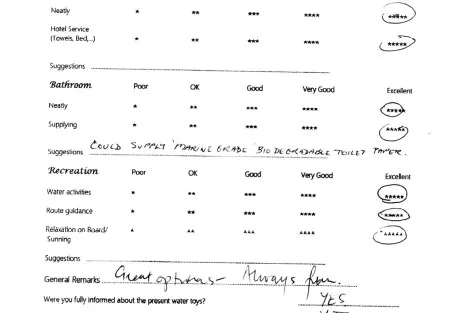 Neatly * ** *** **** *****
Hotel Service
(Towels, Bed,..) * ** *** **** *****
Suggestions
Bathroom Poor OK Good Very Good Excellent
Neatly * ** *** **** *****
Supplying * ** *** **** *****
Suggestions COULD SUPPLY 'MARINE GRADE' BIODEGRADABLE TOILET PAPER.
Recreation Poor OK Good Very Good Excellent
Water activities * ** *** **** *****
Route guidance * ** *** **** *****
Relaxation on Board/
Sunning * ** *** **** *****
Suggestions
General Remarks Great options - Always fun.
Were you fully informed about the present water toys? YES